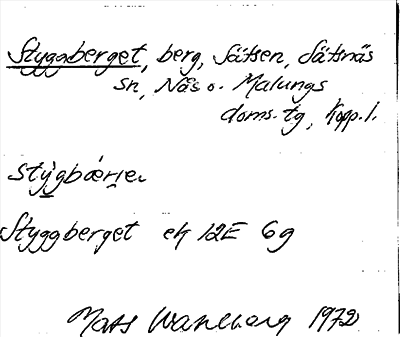 Styggberget, berg, Sätsen, Sätsnäs
sn, Näs o. Malungs
doms. tg, Kopp. l.
stỳgbǽrje
Styggberget ek 12E 6g
Mats Wahlberg 1972